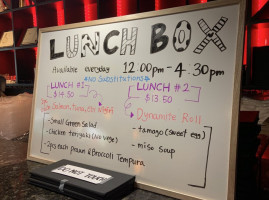 LUNCH BOX
Available everyday 12:00pm-4:30pm
*No Substitutions*
LUNCH #1
$14.50
LUNCH #2
$13.50
Dynamite Roll
-Small Green Salad
-Chicken teriyaki
-2pcs each prawn & Broccoli Tempura
-tamago (sweet egg)
-miso soup
DO NOT TOUCH